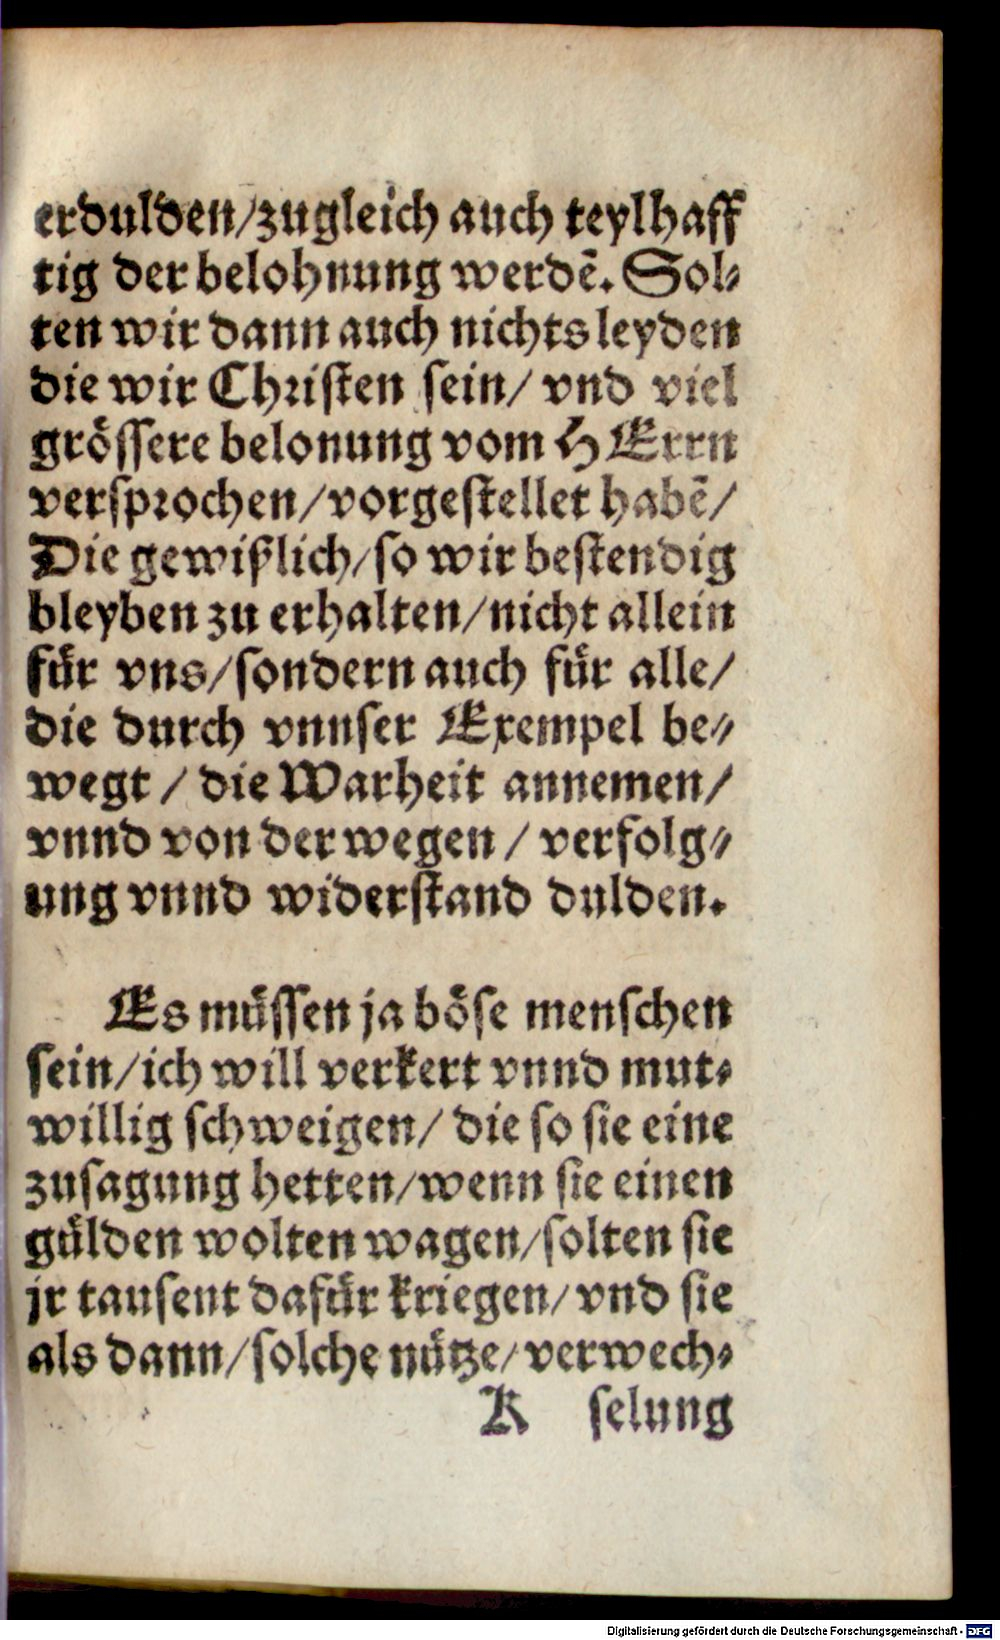 erdulden/zugleich auch teylhaff
tig der belohnung werdẽ. Sol⸗
ten wir dann auch nichts leyden
die wir Christen sein/ vnd viel
grössere belonung vom HErrn
versprochen/vorgestellet habẽ/
Die gewißlich/so wir bestendig
bleyben zu erhalten/nicht allein
für vns/sondern auch für alle/
die durch vnnser Exempel be⸗
wegt / die Warheit annemen/
vnnd von der wegen / verfolg⸗
ung vnnd widerstand dulden.
Es müssen ja böse menschen
sein/ich will verkert vnnd mut⸗
willig schweigen/ die so sie eine
zusagung hetten/wenn sie einen
gülden wolten wagen/solten sie
jr tausent dafür kriegen/ vnd sie
als dann/solche nütze/verwech⸗
K selung
Digitalisierung gefördert durch die Deutsche Forschungsgemeinschaft - DFG